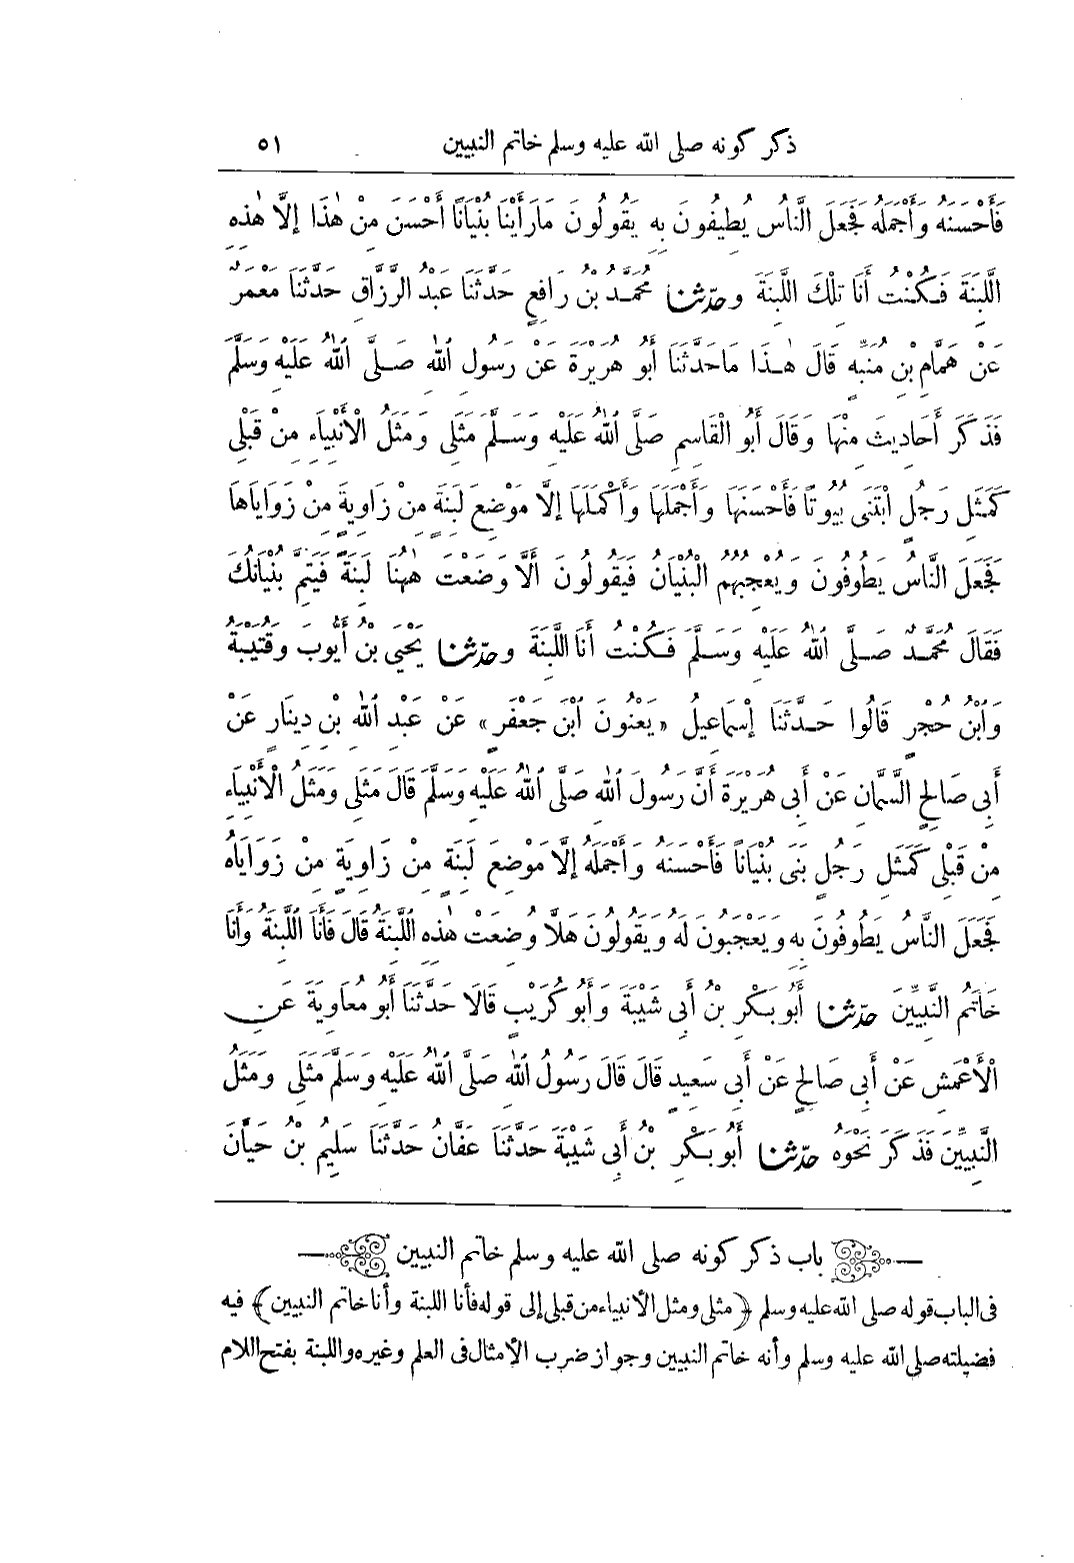 ذكر كونه صلى الله عليه وسلم خاتم النبيين ٥١
فَأَحْسَنَهُ وَأَجْمَلَهُ فَجَعَلَ النَّاسُ يُطِيفُونَ بِهِ يَقُولُونَ مَا رَأَيْنَا بُنْيَانًا أَحْسَنَ مِنْ هٰذَا إِلَّا هٰذِهِ
اللَّبِنَةَ فَكُنْتُ أَنَا تِلْكَ اللَّبِنَةَ وحدثنا مُحَمَّدُ بْنُ رَافِعٍ حَدَّثَنَا عَبْدُ الرَّزَّاقِ حَدَّثَنَا مَعْمَرٌ
عَنْ هَمَّامِ بْنِ مُنَبِّهٍ قَالَ هٰذَا مَا حَدَّثَنَا أَبُو هُرَيْرَةَ عَنْ رَسُولِ اللهِ صَلَّى اللهُ عَلَيْهِ وَسَلَّمَ
فَذَكَرَ أَحَادِيثَ مِنْهَا وَقَالَ أَبُو الْقَاسِمِ صَلَّى اللهُ عَلَيْهِ وَسَلَّمَ مَثَلِى وَمَثَلُ الْأَنْبِيَاءِ مِنْ قَبْلِى
كَمَثَلِ رَجُلٍ ابْتَنَى بُيُوتًا فَأَحْسَنَهَا وَأَجْمَلَهَا وَأَكْمَلَهَا إِلَّا مَوْضِعَ لَبِنَةٍ مِنْ زَاوِيَةٍ مِنْ زَوَايَاهَا
فَجَعَلَ النَّاسُ يَطُوفُونَ وَيُعْجِبُهُمُ الْبُنْيَانُ فَيَقُولُونَ أَلَّا وَضَعْتَ هٰهُنَا لَبِنَةً فَيَتِمَّ بُنْيَانُكَ
فَقَالَ مُحَمَّدٌ صَلَّى اللهُ عَلَيْهِ وَسَلَّمَ فَكُنْتُ أَنَا اللَّبِنَةَ وحدثنا يَحْيَى بْنُ أَيُّوبَ وَقُتَيْبَةُ
وَابْنُ حُجْرٍ قَالُوا حَدَّثَنَا إِسْمَاعِيلُ «يَعْنُونَ ابْنَ جَعْفَرٍ» عَنْ عَبْدِ اللهِ بْنِ دِينَارٍ عَنْ
أَبِى صَالِحٍ السَّمَّانِ عَنْ أَبِى هُرَيْرَةَ أَنَّ رَسُولَ اللهِ صَلَّى اللهُ عَلَيْهِ وَسَلَّمَ قَالَ مَثَلِى وَمَثَلُ الْأَنْبِيَاءِ
مِنْ قَبْلِى كَمَثَلِ رَجُلٍ بَنَى بُنْيَانًا فَأَحْسَنَهُ وَأَجْمَلَهُ إِلَّا مَوْضِعَ لَبِنَةٍ مِنْ زَاوِيَةٍ مِنْ زَوَايَاهُ
فَجَعَلَ النَّاسُ يَطُوفُونَ بِهِ وَيَعْجَبُونَ لَهُ وَيَقُولُونَ هَلَّا وُضِعَتْ هٰذِهِ اللَّبِنَةُ قَالَ فَأَنَا اللَّبِنَةُ وَأَنَا
خَاتَمُ النَّبِيِّينَ حدثنا أَبُو بَكْرِ بْنُ أَبِى شَيْبَةَ وَأَبُو كُرَيْبٍ قَالَا حَدَّثَنَا أَبُو مُعَاوِيَةَ عَنِ
الْأَعْمَشِ عَنْ أَبِى صَالِحٍ عَنْ أَبِى سَعِيدٍ قَالَ قَالَ رَسُولُ اللهِ صَلَّى اللهُ عَلَيْهِ وَسَلَّمَ مَثَلِى وَمَثَلُ
النَّبِيِّينَ فَذَكَرَ نَحْوَهُ حدثنا أَبُو بَكْرِ بْنُ أَبِى شَيْبَةَ حَدَّثَنَا عَفَّانُ حَدَّثَنَا سَلِيمُ بْنُ حَيَّانَ
باب ذكر كونه صلى الله عليه وسلم خاتم النبيين
فى الباب قوله صلى الله عليه وسلم ﴿مثلى ومثل الأنبياء من قبلى إلى قوله فأنا اللبنة وأنا خاتم النبيين﴾ فيه
فضيلته صلى الله عليه وسلم وأنه خاتم النبيين وجواز ضرب الأمثال فى العلم وغيره واللبنة بفتح اللام